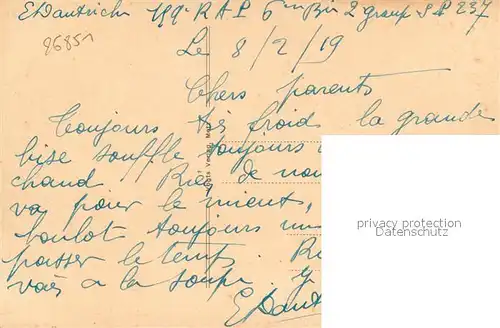 EDautrich 199e R A P 6em Bie 2 group S P 237
86851
Le 8/2/19
Chers parents
Toujours très froid la grande
bise souffle toujours
chaud. Rien de nou
va pour le mieux,
boulot toujours
passer le temps.
vais a la soupe.
EDaut
privacy protection
Datenschutz